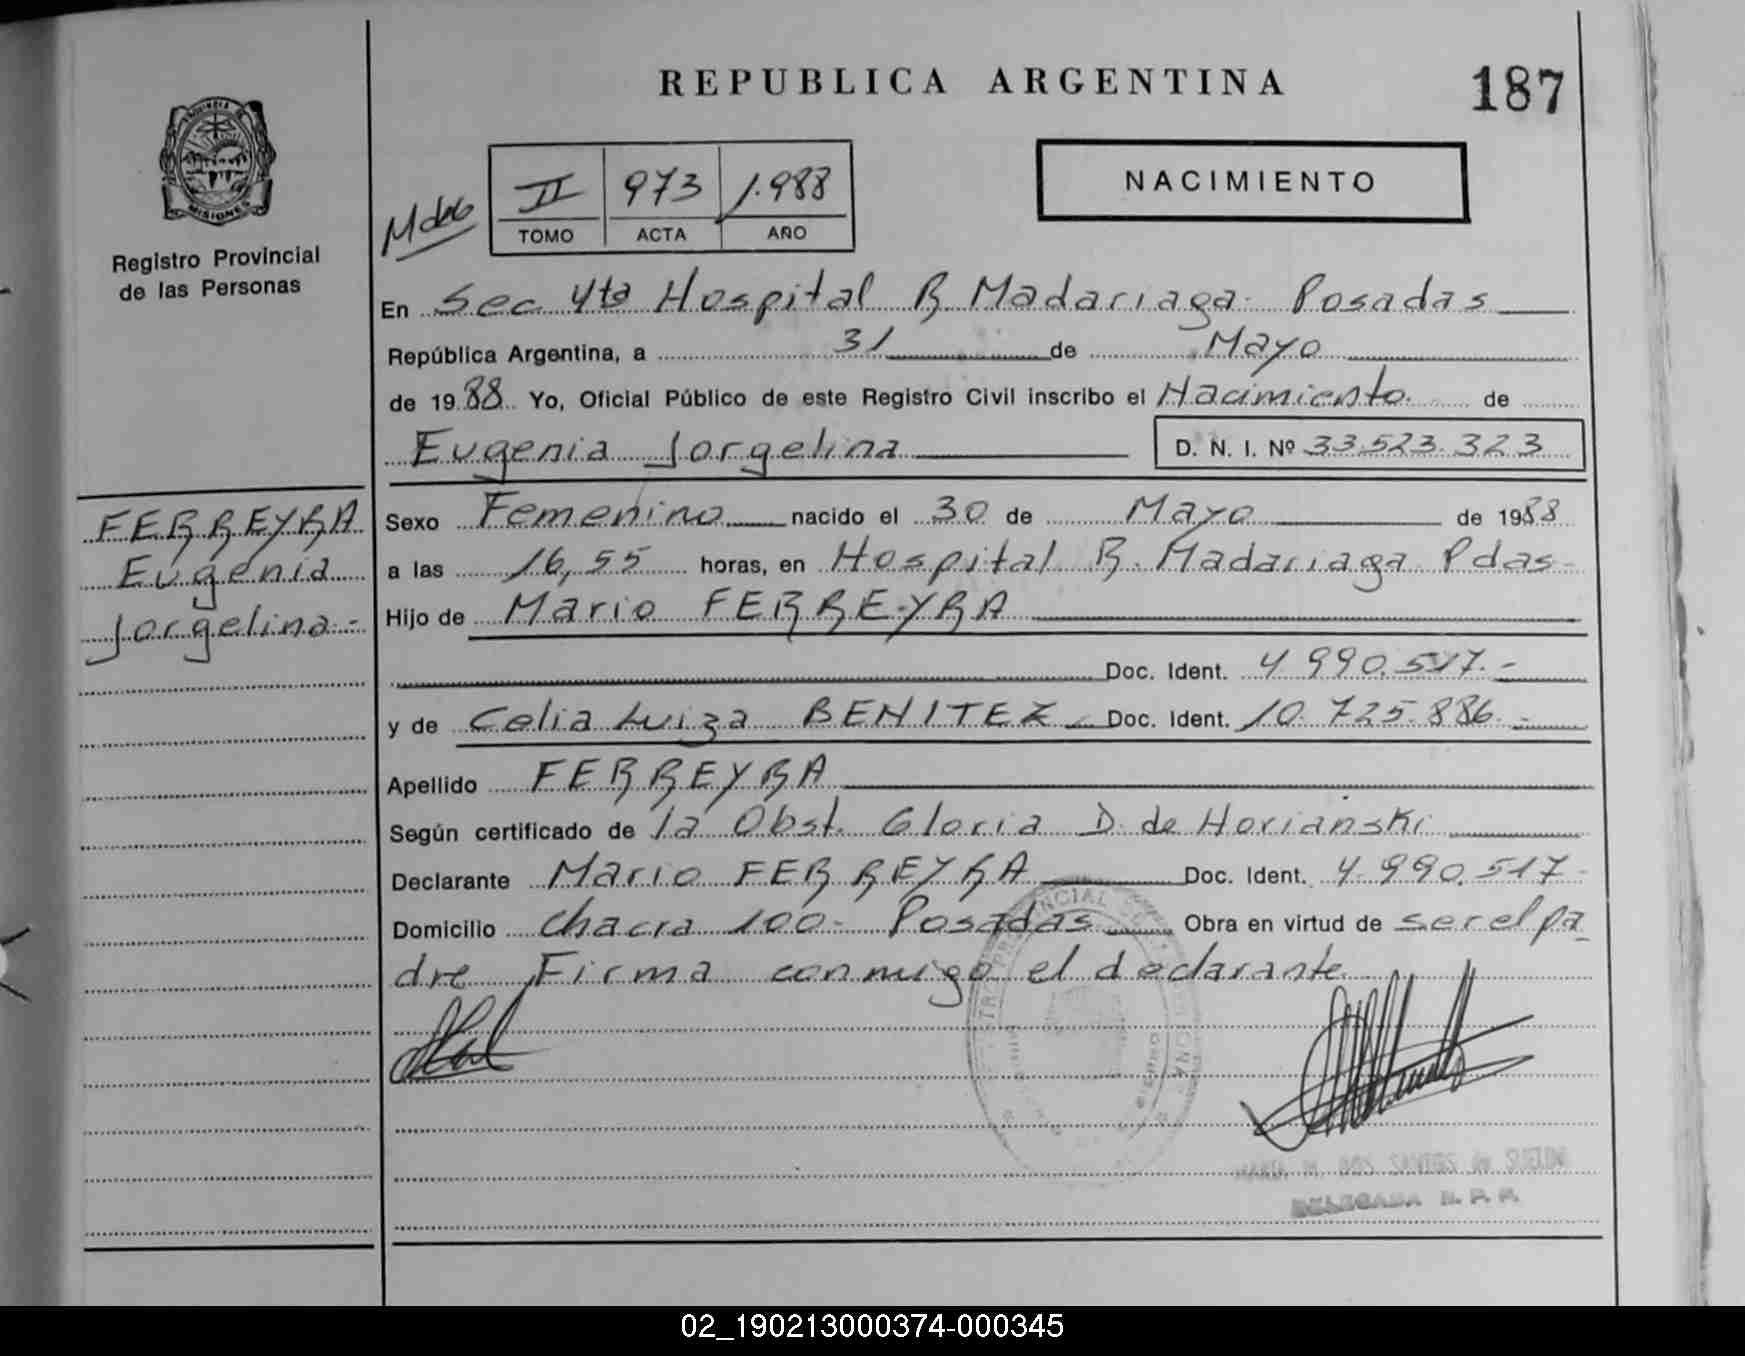 REPUBLICA ARGENTINA
187
PROVINCIA DE
MISIONES
Registro Provincial
de las Personas
II 973 1.988
TOMO ACTA AÑO
NACIMIENTO
En Sec 4ta Hospital R Madariaga Posadas
República Argentina, a 31 de Mayo
de 1988 Yo, Oficial Público de este Registro Civil inscribo el Nacimiento de
Eugenia Jorgelina D. N. I. Nº 33.523.323
FERREYRA
Eugenia
Jorgelina.-
Sexo Femenino nacido el 30 de Mayo de 1988
a las 16,55 horas, en Hospital R. Madariaga Pdas-
Hijo de Mario FERREYRA
Doc. Ident. 4.990.517.-
y de Celia Luiza BENITEZ Doc. Ident. 10.725.886.-
Apellido FERREYRA
Según certificado de la Obst. Gloria D. de Horianski
Declarante Mario FERREYRA Doc. Ident. 4.990.517-
Domicilio chacra 100- Posadas Obra en virtud de ser el pa
dre Firma conmigo el declarante
MARIA M. DOS SANTOS de
DELEGADA R. P. P.
02_190213000374-000345